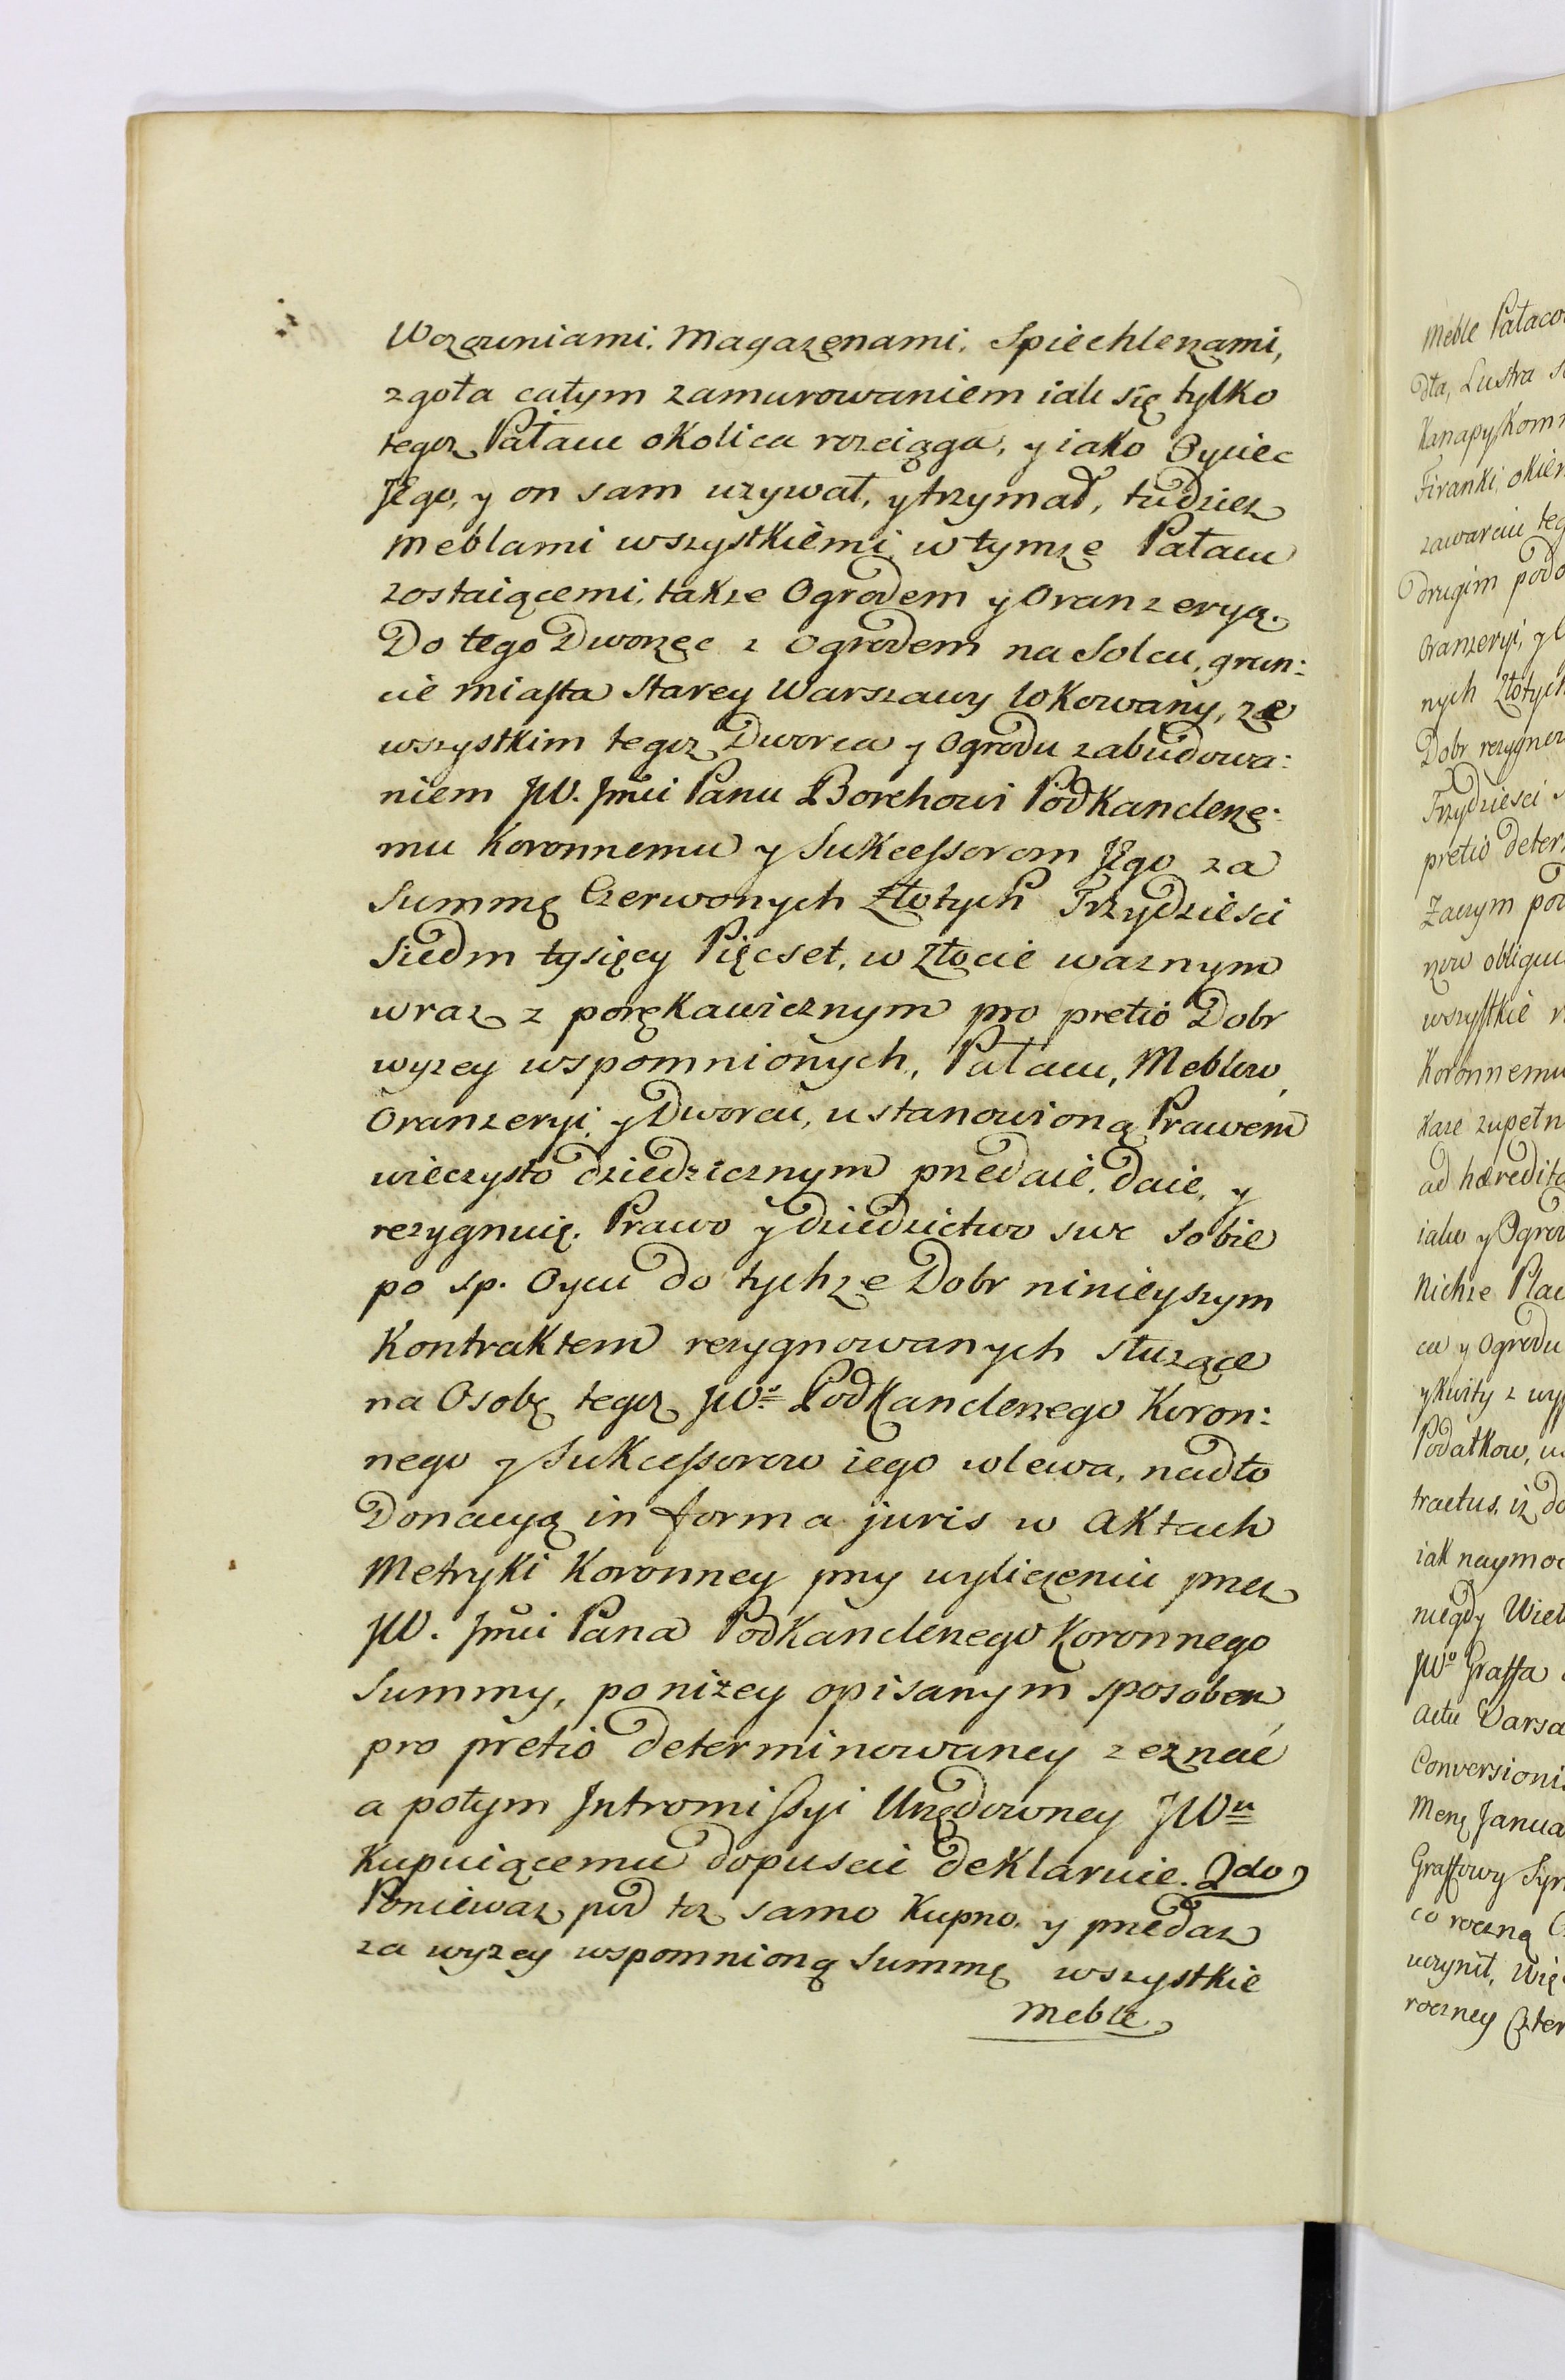 Wozowniami, Magazenami, Spiechlerzami,
zgoła całym zamurowaniem iak się tylko
tegoz Pałacu okolica rozciąga, y iako Oyciec
Jego, y on sam uzywał, y trzymał, tudziez
Meblami wszystkiemi w tymze Pałacu
zostaiącemi, takze Ogrodem y Oranzeryą.
Do tego Dworzec z Ogrodem na Solcu, grun:
cie Miasta Starey Warszawy lokowany, ze
wszystkim tegoz Dworca y Ogrodu zabudowa:
niem JW. Jmci Panu Borchowi Podkanclerze:
mu Koronnemu y Sukcessorom Jego za
Summę Czerwonych Złotych Trzydziesci
Siedm tysięcy Pięcset, w Złocie waznym
wraz z porękawicznym pro pretio Dobr
wyzey wspomnionych, Pałacu, Meblow,
Oranzeryi y Dworcu, ustanowioną Prawem
wieczysto dziedzicznym przedaie, daie, y
rezygnuię. Prawo y dziedzictwo swe sobie
po sp. Oycu do tychze Dobr ninieyszym
Kontraktem rezygnowanych słuzące
na Osobę tegoz JWo Podkanclerzego Koron:
nego y Sukcessorow iego wlewa, nadto
Donacyą in forma juris w Aktach
Metryki Koronney przy wyliczeniu przez
JW. Jmci Pana Podkanclerzego Koronnego
Summy, ponizey opisanym sposobem,
pro pretio determinowaney zeznać
a potym Intromissyi Urzędowney JWu
Kupuiącemu dopuscić deklaruie. 2do
Poniewaz pod toz samo Kupno, y przedaz
za wyzey wspomnioną Summę wszystkie
Meble
Meble Pałaco
dła, Lustra
Kanapy, Kom
Firanki, okien
zawarciu teg
drugim podo
Oranzeryi, y
nych Złotych
Dobr rezygno
Trzydziesci
pretio deter
Zaczym po
rzow obligu
wszystkie
Koronnemu
Kaze zupełn
ad haeredita
iakw y Ogrod
Nichze Plac
ca y Ogrodu
y Kwity z wy
Podatkow, u
tractus, iz do
iak naymoc
niegdy Wiel
JWo Graffa
Actu Varsa
Conversioni
Mens Janua
Graffowy Syr
co roczną
uczynił, Wię
roczney Czter